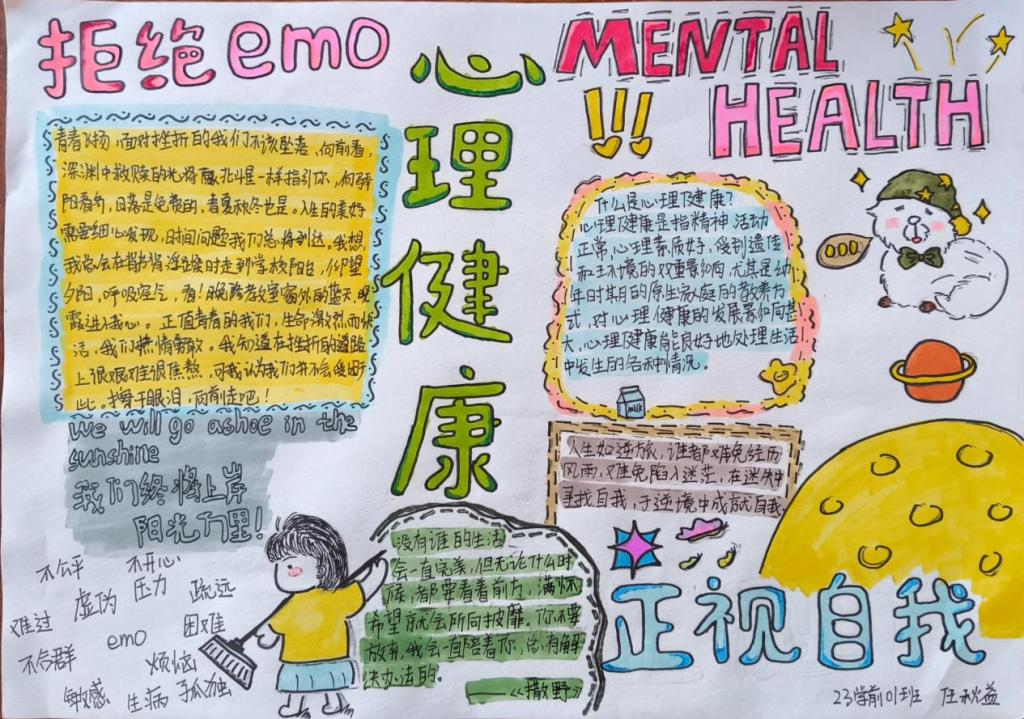 拒绝emo
心理健康
MENTAL
HEALTH
!!!
青春飞扬,面对挫折的我们不该坠落,向前看,
深渊中救赎的光将像北斗星一样指引你,向骄
阳看齐,日落是免费的,春夏秋冬也是,人生的美好
需要细心发现,时间问题我们总将到达,我想
我总会在
时走到学校阳台,仰望
夕阳,呼吸空气,看!晚
教室窗外的蓝天,晚
霞进入我心。正值青春的我们,生命激烈而快
活,我们热情勇敢。我知道在挫折的道路
上很艰难很焦熬,可我认为我们并不会
于
此。擦干眼泪,向前走吧!
we will go ashoe in the
sunshine
我们终将上岸
阳光万里!
什么是心理健康?
心理健康是指精神活动
正常,心理素质好,受到遗传
和环境的双重影响,尤其是幼
年时期的原生家庭的教养方
式,对心理健康的发展影响甚
大,心理健康能良好地处理生活
中发生的各种情况。
milk
人生如逆旅,谁都难免经历
风雨,难免陷入迷茫,在迷失中
寻找自我,于逆境中成就自我。
没有谁的生活
会一直完美,但无论什么时
候,都要看着前方,满怀
希望就会所向披靡。你不要
放弃,我会一直陪着你,总有解
决办法的。
——《撒野》
正视自我
不公平
不开心
压力
疏远
虚伪
难过
emo
困难
不合群
烦恼
敏感
生病
孤独
23学前01班 任秋益